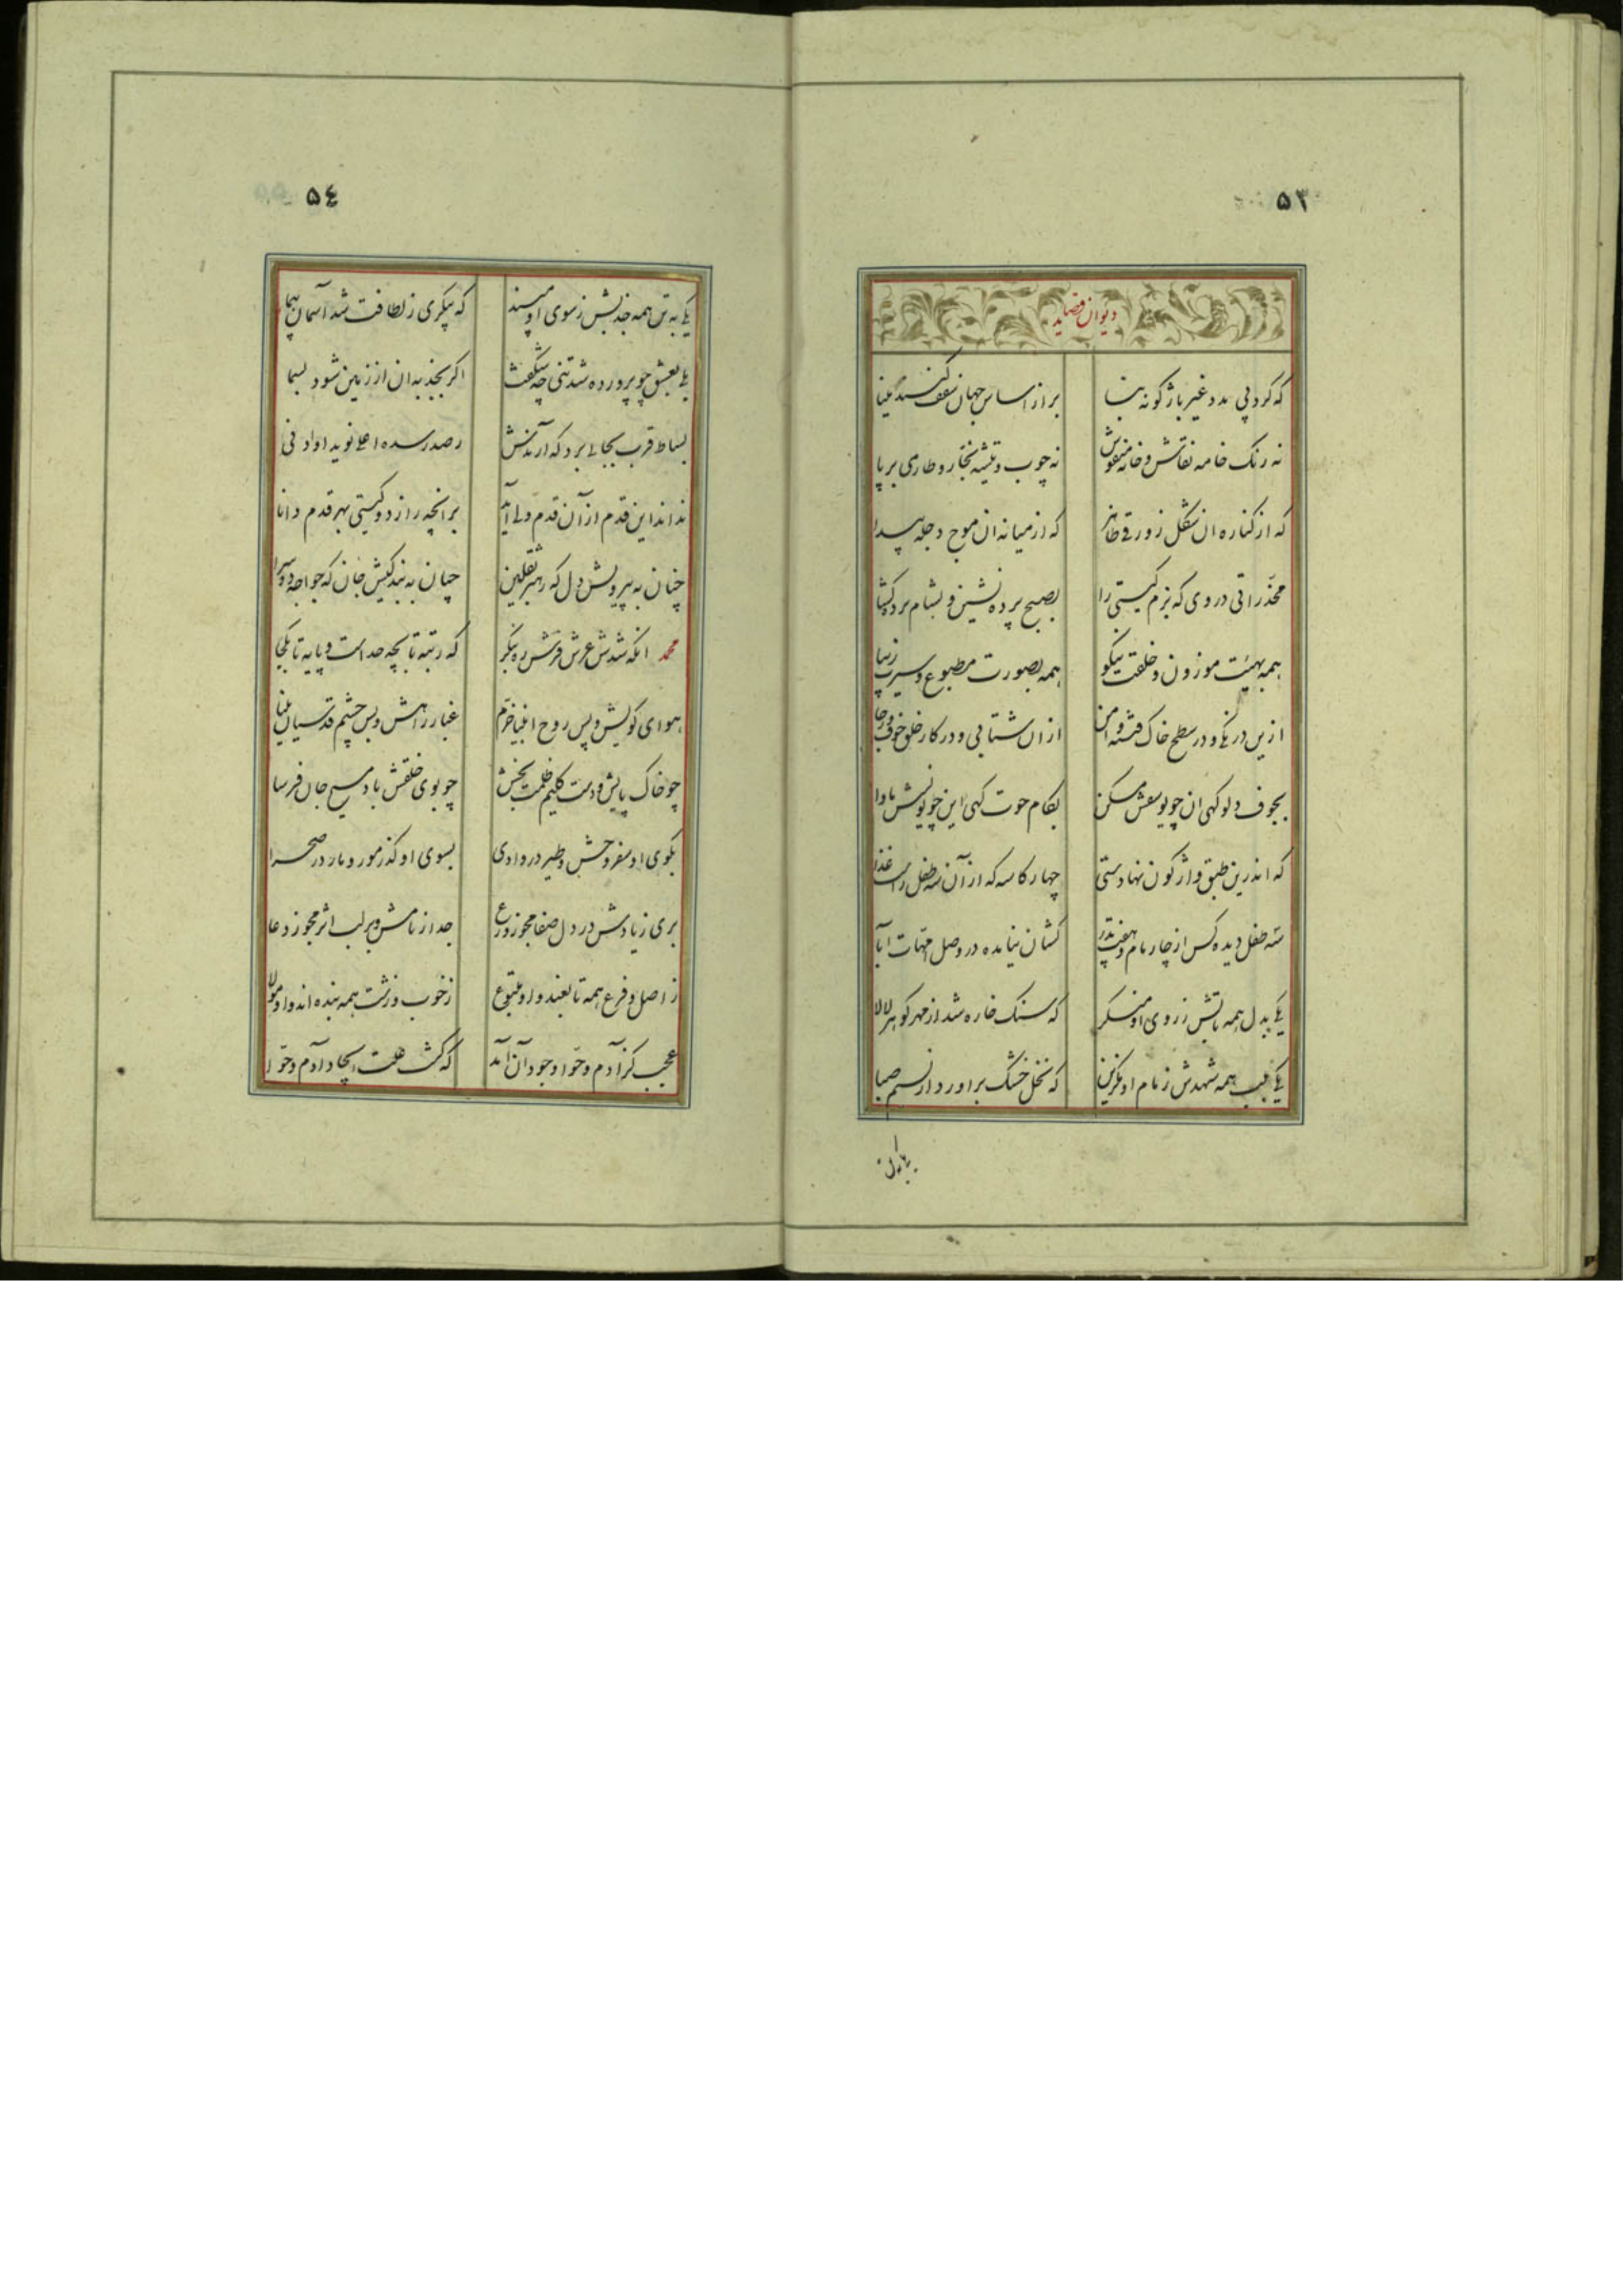 ۵۳
دیوان قصاید
که کرد بی مدد غیر باژگونه بنا براز اساس جهان سقف گنبد مینا
نه رنک خامه نقاش و خانه منقوش نه چوب و تیشه نجار و طارمی برپا
که از کناره ان شکل زورقی ظاهر که از میانه ان موج دجله پیدا
مخدراتی در وی که بزم کیستی را بصبح پرده نشین و بشام پرده کشا
همه بهیئت موزون و خلقت نیکو همه بصورت مطبوع و سیرت زیبا
ازین درنکی و در سطح خاک فتنه و امن ازان شتابی و در کار خلق خوف و رجا
بجوف دلو کهی ان چو یوسفش مسکن بکام حوت کهی این چو یونسش ماوا
که اندرین طبق واژکون نهاد دستی چهار کاسه که از آن سه طفل راست غذا
سه طفل دیده کس از چار مام و هفت پدر کشان نیامده در وصل امهات آبا
یکی بدل همه تابش ز روی او منکر که سنک خاره شد از مهر کوهر لالا
یکی بلب همه شهدش ز مام او مکزین که نخل خشک براورد از نسیم صبا
۵٤
یکی به تن همه جذبش ز سوی او مپسند که پیکری ز لطافت شد آسمان پیما
بعشق چو پرورده شد تنی چه شکفت اکر بجذبه ان از زمین شود بسما
بساط قرب بجایی برد که آرندش ز صدر سده اعلی نوید او ادنی
نداند این قدم از آن قدم ولی آمد برانچه راز دو کیتی بهر قدم دانا
چنان به پیرویش دل که رهبر ثقلین چنان به بندکیش جان که خواجه دوسرا
محمد انکه شدش عرش فرش ره بنکر که رتبه تا بچه حد است و پایه تا بکجا
هوای کویش و پس روح انبیا خرم غبار راهش و بس چشم قدسیان بینا
چو خاک پایش و دست کلیم ظلمت بخش چو بوی خلقش باد مسیح جان فرسا
بکوی او سفر وحش و طیر در وادی بسوی او کذر مور و مار در صحرا
بری ز یادش در دل صفا مجو ز ورع جدا ز نامش و بر لب اثر مجو ز دعا
ز اصل و فرع همه تابعند و او متبوع ز خوب و زشت همه بنده اند و او مولا
عجب کز آدم و حوا وجود آن آمد که کشت علت ایجاد آدم و حوا